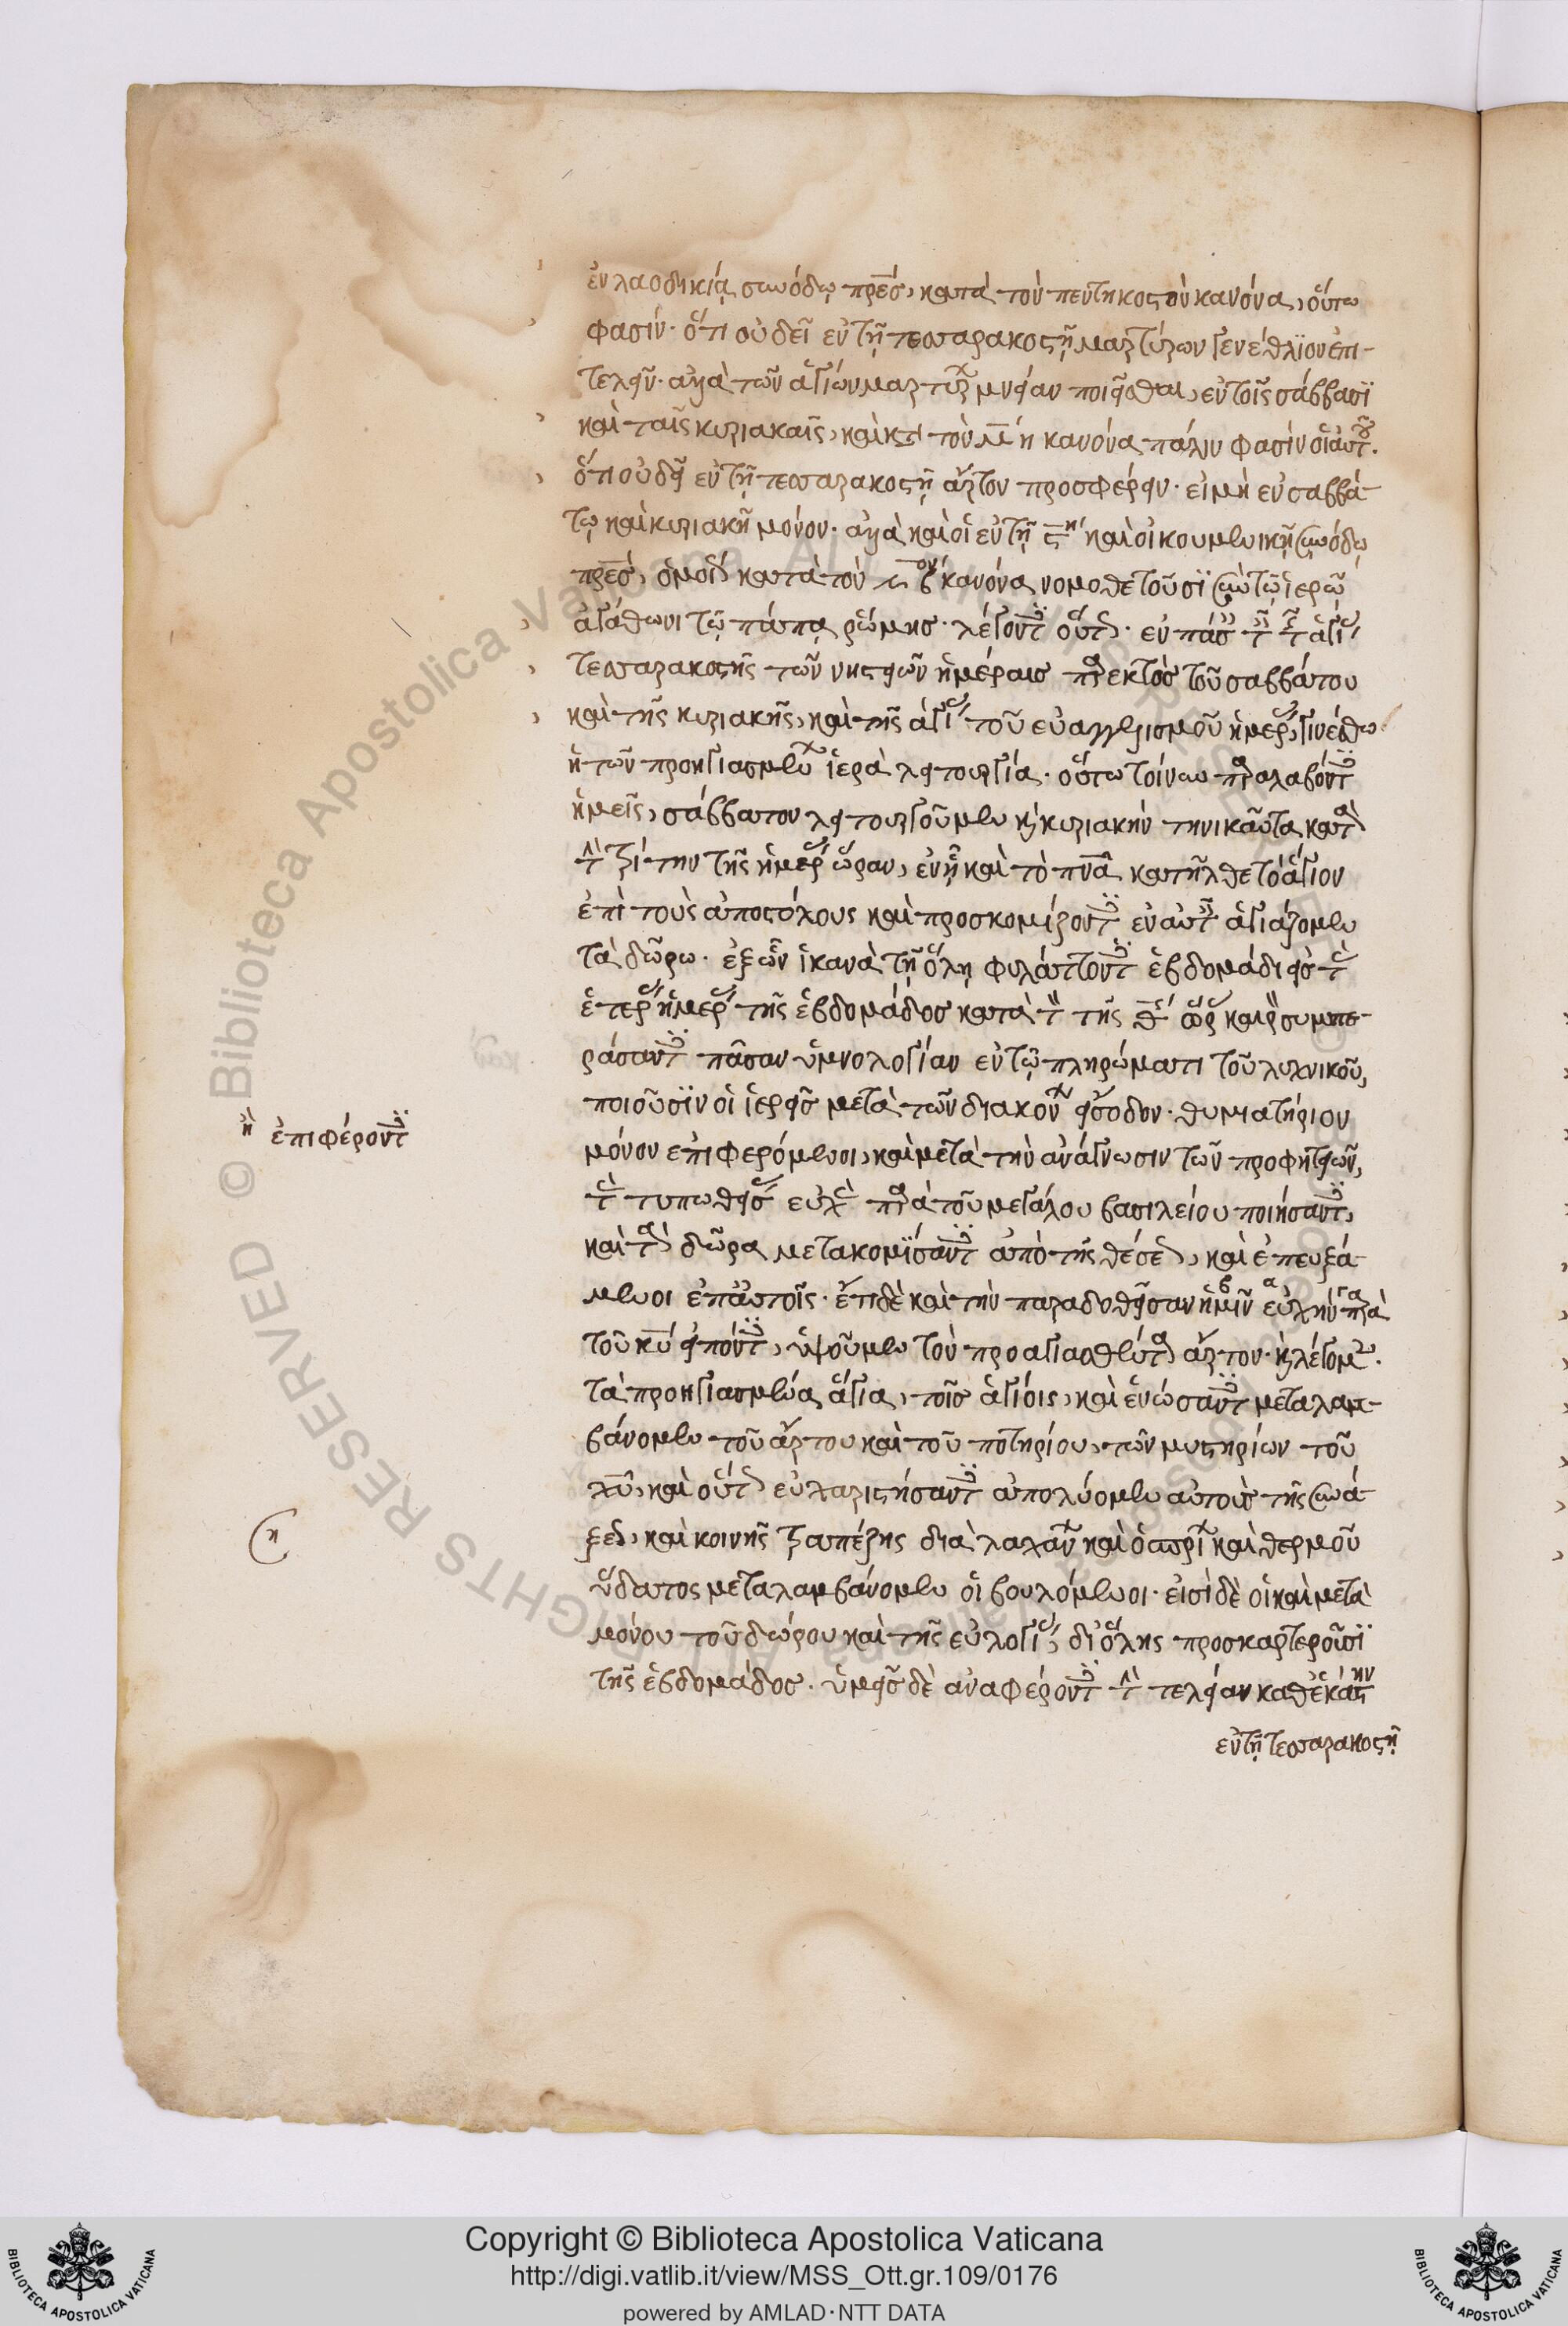 ἐν λαοδικίᾳ συνόδῳ πρ̅ε̅ς, κατὰ τὸν πεντηκοστὸν κανόνα, οὕτω
φασίν· ὅτι οὐ δεῖ ἐν τῇ τεσσαρακοστῇ μαρτύρων γενέθλϊον ἐπι-
τελεῖν· ἀλλὰ τῶν ἁγίων μαρτύρ μνείαν ποιεῖσθαι, ἐν τοῖς σάββασϊ
καὶ ταῖς κυριακαῖς, καὶ κτ τὸν μ̅η κανόνα πάλιν φασὶν οἱ αὐτ.
ὅτι οὐ δεῖ ἐν τῇ τεσσαρακοστῇ ἄρτον προσφέρειν· εἰ μὴ ἐν σαββά-
τῳ καὶ κυριακῇ μόνον· ἀλλὰ καὶ οἱ ἐν τῇ ϛ̅ῃ καὶ οἰκουμενικῇ συνόδῳ
πρ̅ε̅ς, ὁμοί κατὰ τὸν νβον κανόνα νομοθετοῦσϊ σὺν τῷ ἱερῷ
ἀγάθωνι τῷ πάπᾳ ῥώμησ· λέγοντ οὕτ· ἐν πάσ τ τ ἁγί
τεσσαρακοστῆς τῶν νηστειῶν ἡμέραισ πρεκτὸς τοῦ σαββάτου
καὶ τῆς κυριακῆς, καὶ τῆς ἁγί τοῦ εὐαγγελισμοῦ ἡμέρ, γινέσθω
ἡ τῶν προηγιασμεν ἱερὰ λειτουργία· οὕτω τοίνυν πραλαβόντ
ἡμεῖς, σάββατον λειτουργοῦμεν κ κυριακήν τηνικαῦτα κατ
τ τρίτην τῆς ἡμέρ ὥραν, ἐν ᾗ καὶ τὸ π̅ν̅α κατῆλθε τὸ ἅγιον
ἐπὶ τοὺς ἀποστόλους καὶ προσκομίζοντ ἐν αὐτ ἁγιάζομεν
τὰ δῶρω· ἐξ ὧν ἱκανὰ τῇ ὅλῃ φυλάττοντ ἑβδομάδι εἰσ τ
ἑτέρ ἡμέρ τῆς ἑβδομάδοσ κατὰ τ τῆς θ̅ ὥρ καιρ συμπε-
ράσαντ πᾶσαν ὑμνολογίαν ἐν τῷ πληρώματι τοῦ λυχνικοῦ,
ποιοῦσϊν οἱ ἱερεῖσ μετὰ τῶν διακόν εἴσοδον· θυμιατήριον
μόνον ἐπιφερόμενοι, καὶ μετὰ τὴν ἀνάγνωσιν τῶν προφητειῶν,
τ τυπωθεῖσ εὐχ πρὰ τοῦ μεγάλου βασιλείου ποιήσαντ,
καὶ τ δῶρα μετακομϊσάντ ἀπὸ τῆς θέσε, καὶ ἐπευξά-
μενοι ἐπ' αὐτοῖς· ἔτι δὲ καὶ τὴν παραδοθεῖσαν ἡμῖν εὐχὴν πρὰ
τοῦ κ̅υ εἰπόντ, ὑψοῦμεν τὸν προαγιασθέντ ἄρτον· κ λέγομ·
τὰ προηγιασμένα ἅγια, τοῖσ ἁγίοις, καὶ ἑνώσαντ μεταλαμ-
βάνομεν τοῦ ἄρτου καὶ τοῦ ποτηρίου, τῶν μυστηρίων τοῦ
χ̅υ, καὶ οὕτ εὐχαριστήσαντ ἀπολύομεν αὐτοὺσ τῆς συνά-
ξε, καὶ κοινῆς τραπέζης διὰ λαχάν καὶ ὀσπρί καὶ θερμοῦ
ὕδατος μεταλαμβάνομεν οἱ βουλόμενοι· εἰσὶ δὲ οἱ καὶ μετὰ
μόνου τοῦ δώρου καὶ τῆς εὐλογί, δι' ὅλης προσκαρτεροῦσϊ
τῆς ἑβδομάδοσ· ὑμεῖσ δὲ ἀναφέροντ τ τελείαν καθ' ἑκάστην
ἐν τῇ τεσσαρακοστῇ
ἢ ἐπιφέροντ
Copyright © Biblioteca Apostolica Vaticana
http://digi.vatlib.it/view/MSS_Ott.gr.109/0176
powered by AMLAD·NTT DATA
BIBLIOTECA APOSTOLICA VATICANA
BIBLIOTECA APOSTOLICA VATICANA